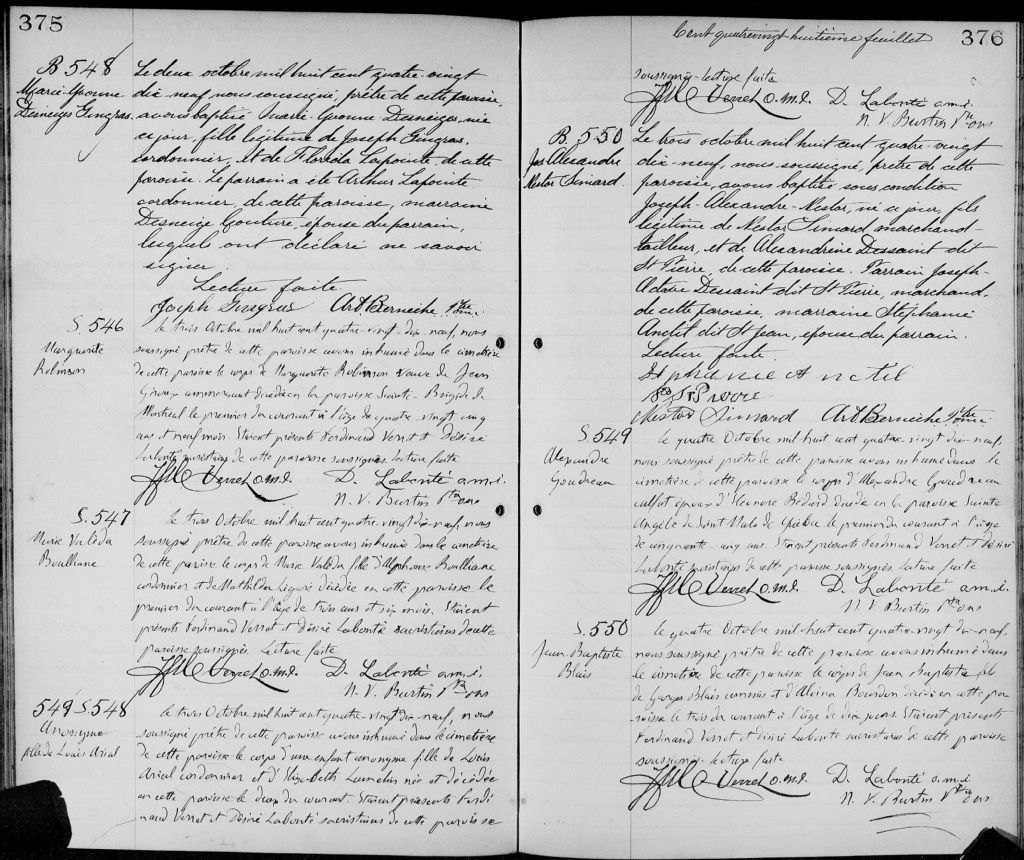 375
B 548
Marie-Yvonne
Desneiges Gingras
Le deux octobre mil huit cent quatre-vingt
dix-neuf, nous soussigné, prêtre de cette paroisse,
avons baptisé Marie-Yvonne Desneiges, née
ce jour, fille légitime de Joseph Gingras,
cordonnier, et de Floreda Lapointe, de cette
paroisse. Le parrain a été Arthur Lapointe
cordonnier, de cette paroisse, marraine
Desneige Couture, épouse du parrain,
lesquels ont déclaré ne savoir
signer.
Lecture faite.
Joseph Gingras Art Berneche ptre o.m.i.
S. 546
Marguerite
Robinson
Le trois Octobre mil huit cent quatre-vingt-dix-neuf, nous
soussigné prêtre de cette paroisse avons inhumé dans le cimetière
de cette paroisse le corps de Marguerite Robinson veuve de Jean
Giroux commerçant décédée en la paroisse Sainte-Brigide de
Montréal le premier du courant à l'âge de quatre-vingt cinq
ans et neuf mois. Etaient présents Ferdinand Verret et Désiré
Labonté sacristains de cette paroisse soussignés. Lecture faite
Verret o.m.i. D. Labonté o.m.i.
N. V. Burtin Ptre oms
S. 547
Marie Valéda
Boulliane
Le trois Octobre mil huit cent quatre-vingt dix-neuf, nous
soussigné prêtre de cette paroisse avons inhumé dans le cimetière
de cette paroisse le corps de Marie Valéda fille d'Alphonse Boulliane
cordonnier et de Mathilda Légaré décédée en cette paroisse le
premier du courant à l'âge de trois ans et six mois. Etaient
présents Ferdinand Verret et Désiré Labonté sacristains de cette
paroisse soussignés. Lecture faite
Verret o.m.i. D. Labonté o.m.i.
N. V. Burtin Ptre oms
549 S. 548
Anonyme
fille de Louis Arial
Le trois Octobre mil huit cent quatre-vingt dix-neuf, nous
soussigné prêtre de cette paroisse avons inhumé dans le cimetière
de cette paroisse le corps d'une enfant anonyme fille de Louis
Arial cordonnier et d'Elizabeth née et décédée
en cette paroisse le deux du courant. Etaient présents Ferdi
nand Verret et Désiré Labonté sacristains de cette paroisse
Cent quatrevingt huitième feuillet
376
soussignés. Lecture faite
Verret o.m.i. D. Labonté o.m.i.
N. V. Burtin Ptre oms
B. 550
Jos Alexandre
Nestor Simard.
Le trois octobre mil huit cent quatre-vingt
dix-neuf, nous soussigné, prêtre de cette
paroisse, avons baptisé sous condition
Joseph-Alexandre-Nestor, né ce jour, fils
légitime de Nestor Simard marchand-
tailleur, et de Alexandrine Dessaint dit
St Pierre, de cette paroisse. Parrain Joseph-
Octave Dessaint dit St Pierre, marchand,
de cette paroisse, marraine Stéphanie
Anctil dit St Jean, épouse du parrain.
Lecture faite.
Stephanie Anctil
St Pierre
Nestor Simard Art Berneche ptre o.m.i.
S. 549
Alexandre
Goudreau
Le quatre Octobre mil huit cent quatre-vingt dix-neuf,
nous soussigné prêtre de cette paroisse avons inhumé dans le
cimetière de cette paroisse le corps d'Alexandre Goudreau
calfat époux d'Eléonore Bédard décédé en la paroisse Sainte
Angèle de Saint Malo de Québec le premier du courant à l'âge
de cinquante-cinq ans. Etaient présents Ferdinand Verret et Désiré
Labonté sacristains de cette paroisse soussignés. Lecture faite
Verret o.m.i. D. Labonté o.m.i.
N. V. Burtin Ptre oms
S. 550
Jean-Baptiste
Blais
Le quatre Octobre mil-huit cent quatre-vingt dix-neuf,
nous soussigné prêtre de cette paroisse avons inhumé dans
le cimetière de cette paroisse le corps de Jean Baptiste fils
de Georges Blais commis et d'Alvina Bourdon décédé en cette pa-
roisse le trois du courant à l'âge de dix jours. Etaient présents
Ferdinand Verret et Désiré Labonté sacristains de cette paroisse
soussignés. Lecture faite
Verret o.m.i. D. Labonté o.m.i.
N. V. Burtin Ptre oms